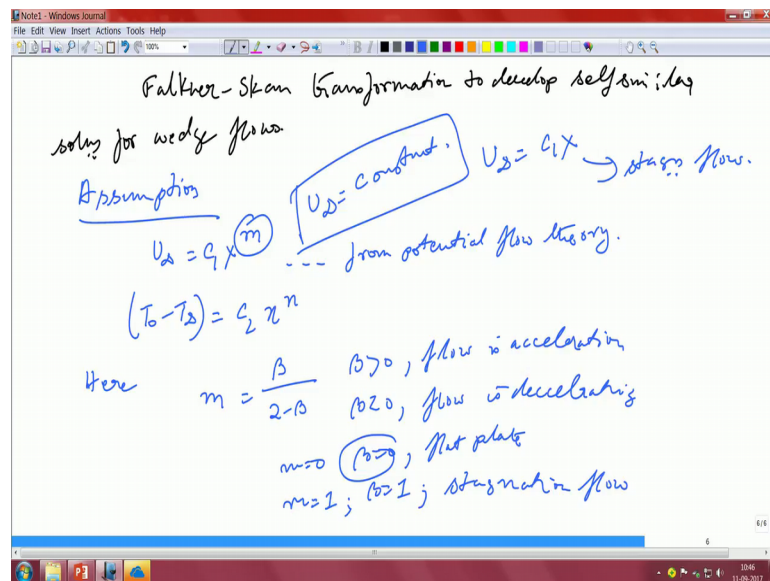 Note1 - Windows Journal
File Edit View Insert Actions Tools Help
100%
Falkner-Skan transformation to develop self similar
solns for wedge flows.
Assumption
U∞ = constant.
U∞ = C₁x → stagn flow.
U∞ = C₁x^m --- from potential flow theory.
(T₀-T∞) = C₂ x^n
Here m = β/(2-β) β>0, flow is acceleration
β<0, flow is decelerating
m=0 β=0, flat plate
m=1; β=1; stagnation flow
6/6
6
10:46
11-09-2017